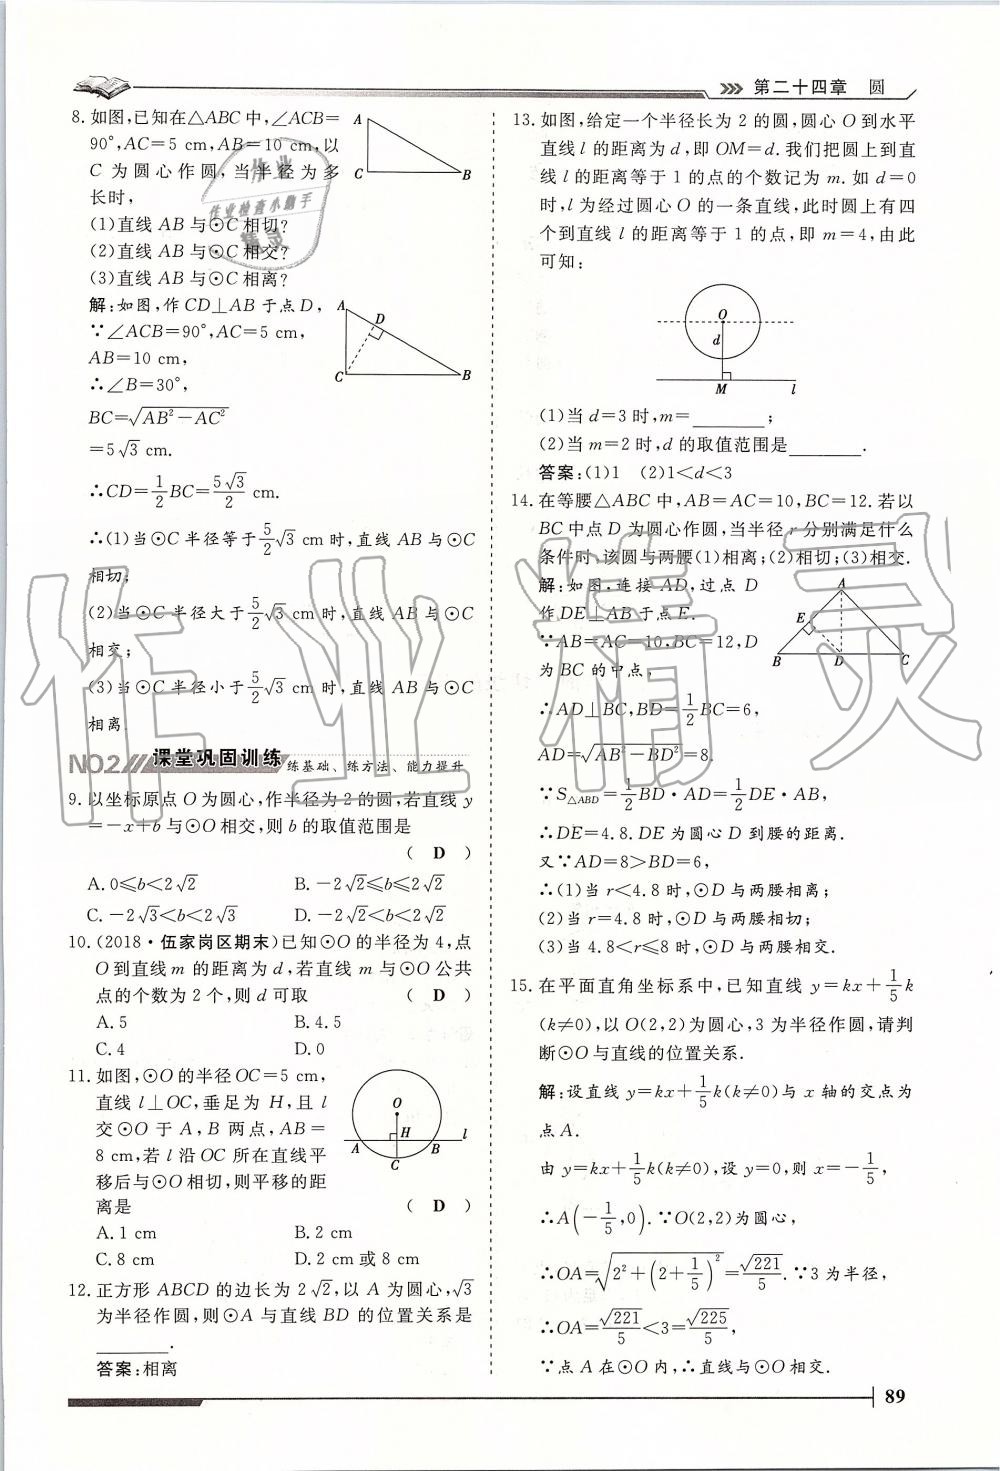 第二十四章 圆
8. 如图,已知在△ABC中,∠ACB=
90°,AC=5 cm,AB=10 cm,以
C为圆心作圆,当半径为多
长时,
(1)直线 AB 与⊙C相切?
(2)直线 AB 与⊙C相交?
(3)直线 AB 与⊙C相离?
A
C
B
解:如图,作 CD⊥AB 于点 D,
∵∠ACB=90°,AC=5 cm,
AB=10 cm,
∴∠B=30°,
BC=√(AB²-AC²)
=5√3 cm.
A
D
C
B
∴CD=1/2 BC=5√3/2 cm.
∴(1)当⊙C 半径等于5/2√3 cm时,直线 AB 与⊙C
相切;
(2)当⊙C 半径大于5/2√3 cm时,直线 AB 与⊙C
相交;
(3)当⊙C 半径小于5/2√3 cm时,直线 AB 与⊙C
相离.
NO.2 课堂巩固训练 练基础、练方法、能力提升
9. 以坐标原点 O 为圆心,作半径为 2 的圆,若直线 y
=-x+b 与⊙O 相交,则 b 的取值范围是
( D )
A. 0≤b<2√2 B. -2√2≤b≤2√2
C. -2√3<b<2√3 D. -2√2<b<2√2
10. (2018·伍家岗区期末)已知⊙O 的半径为 4,点
O 到直线 m 的距离为 d,若直线 m 与⊙O 公共
点的个数为 2 个,则 d 可取 ( D )
A. 5 B. 4.5
C. 4 D. 0
11. 如图,⊙O 的半径 OC=5 cm,
直线 l⊥OC,垂足为 H,且 l
交⊙O 于 A,B 两点,AB=
8 cm,若 l 沿 OC 所在直线平
移后与⊙O 相切,则平移的距
离是 ( D )
O
H
l
A
B
C
A. 1 cm B. 2 cm
C. 8 cm D. 2 cm 或 8 cm
12. 正方形 ABCD 的边长为 2√2,以 A 为圆心,√3
为半径作圆,则⊙A 与直线 BD 的位置关系是
________.
答案:相离
13. 如图,给定一个半径长为 2 的圆,圆心 O 到水平
直线 l 的距离为 d,即 OM=d. 我们把圆上到直
线 l 的距离等于 1 的点的个数记为 m. 如 d=0
时,l 为经过圆心 O 的一条直线,此时圆上有四
个到直线 l 的距离等于 1 的点,即 m=4,由此
可知:
O
d
M
l
(1)当 d=3 时,m=________;
(2)当 m=2 时,d 的取值范围是________.
答案:(1)1 (2)1<d<3
14. 在等腰△ABC 中,AB=AC=10,BC=12. 若以
BC 中点 D 为圆心作圆,当半径 r 分别满足什么
条件时,该圆与两腰(1)相离;(2)相切;(3)相交.
解:如图,连接 AD,过点 D
作 DE⊥AB 于点 E.
∵AB=AC=10,BC=12,D
为 BC 的中点,
A
E
B
D
C
∴AD⊥BC,BD=1/2 BC=6,
AD=√(AB²-BD²)=8.
∵S△ABD=1/2 BD·AD=1/2 DE·AB,
∴DE=4.8. DE 为圆心 D 到腰的距离.
又∵AD=8>BD=6,
∴(1)当 r<4.8 时,⊙D 与两腰相离;
(2)当 r=4.8 时,⊙D 与两腰相切;
(3)当 4.8<r≤8 时,⊙D 与两腰相交.
15. 在平面直角坐标系中,已知直线 y=kx+1/5 k
(k≠0),以 O(2,2)为圆心,3 为半径作圆,请判
断⊙O 与直线的位置关系.
解:设直线 y=kx+1/5 k(k≠0)与 x 轴的交点为
点 A.
由 y=kx+1/5 k(k≠0),设 y=0,则 x=-1/5,
∴A(-1/5,0). ∵O(2,2)为圆心,
∴OA=√(2²+(2+1/5)²)=√221/5. ∵3 为半径,
∴OA=√221/5<3=√225/5,
∵点 A 在⊙O 内,∴直线与⊙O 相交.
89
作业
作业检查小助手
精灵
作业精灵